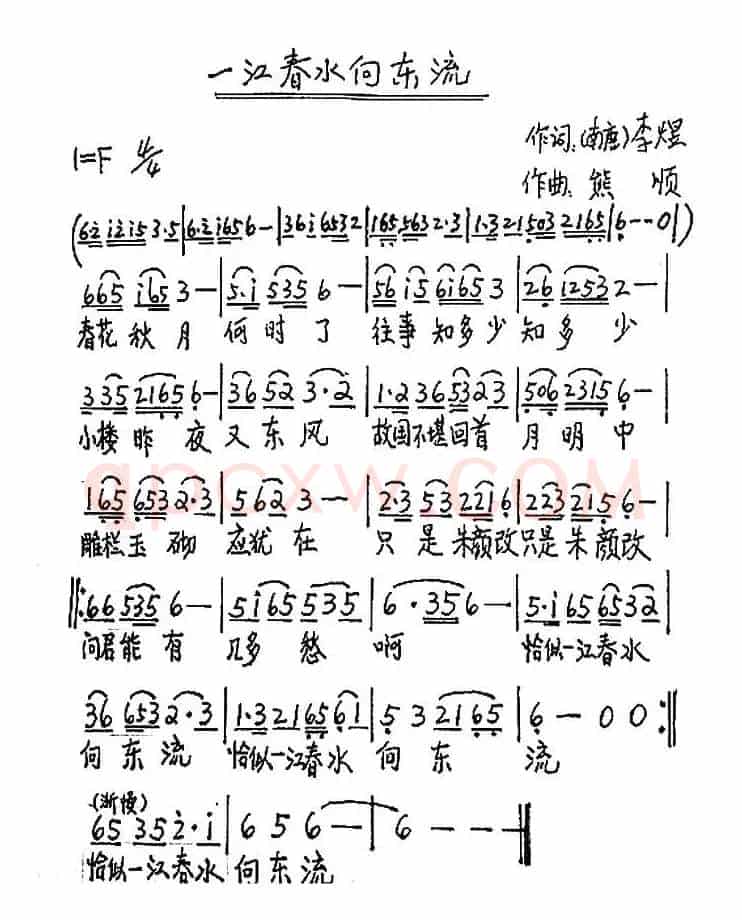 一江春水向东流
作词:(南唐)李煜
1=F 4/4
作曲:熊 顺
(6·2 1 2 1 5 3·5|6·2 1 6 5 6-|3 6 1 6 5 3 2|1 6 5 5 6 3 2·3|1·3 2 1 5 0 3 2 1 6 5|6--0|)
6 6 5 1 6 5 3-|5·1 5 3 5 6-|5 6 1 5 6 1 6 5 3|2 6 1 2 5 3 2-|
春花 秋 月 何 时 了 往事 知多少 知 多 少
3 3 5 2 1 6 5 6-|3 6 5 2 3·2|1·2 3 6 5 3 2 3|5 0 6 2 3 1 5 6-|
小楼 昨 夜 又 东 风 故国不堪回首 月 明 中
1 6 5 6 5 3 2·3|5 6 2 3--|2·3 5 3 2 2 1 6|2 2 3 2 1 5 6-|
雕栏 玉 砌 应犹 在 只 是 朱颜改只是 朱 颜改
‖:6 6 5 3 5 6-|5 1 6 5 5 3 5|6·3 5 6-|5·1 6 5 6 5 3 2|
问君能 有 几多 愁 啊 恰似一江春水
3 6 6 5 3 2·3|1·3 2 1 6 5 6 1|5 3 2 1 6 5|6-0 0:‖
向 东 流 恰似一江春水 向 东 流
(渐慢)
6 5 3 5 2·1|6 5 6-|6---‖
恰似一江春水 向东流
qpcxw.COM